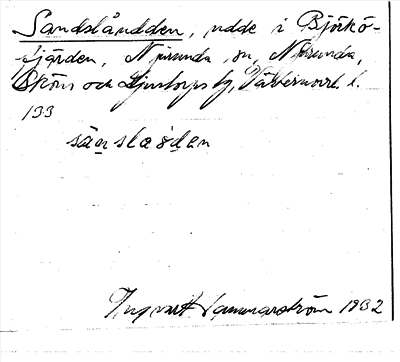 Sandslåudden, udde i Björkö-
fjärden, Njurunda sn, Njurunda,
Sköns och Ljustorps tg, Västernorrl. l.
133
Ingvart Hammarström 1932